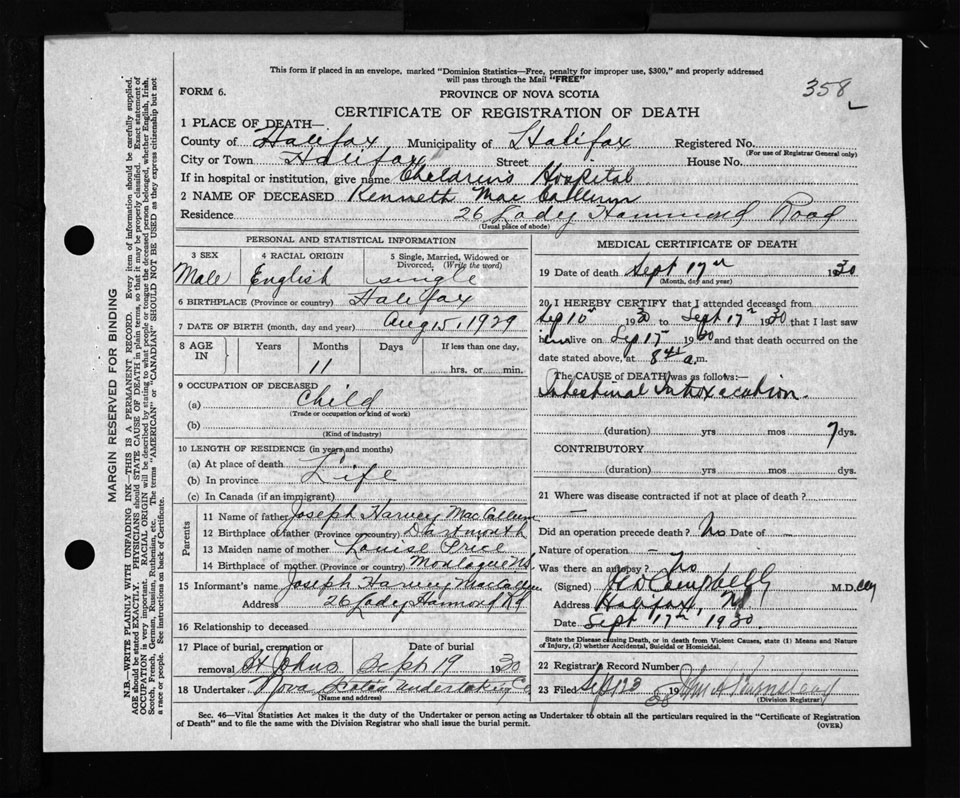 This form if placed in an envelope, marked "Dominion Statistics—Free, penalty for improper use, $300," and properly addressed
will pass through the Mail "FREE"
358
FORM 6.
PROVINCE OF NOVA SCOTIA
CERTIFICATE OF REGISTRATION OF DEATH
1 PLACE OF DEATH—
County of Halifax Municipality of Halifax Registered No.
(For use of Registrar General only)
City or Town Halifax Street House No.
If in hospital or institution, give name Childrens Hospital
2 NAME OF DECEASED Kenneth Mac Callum
Residence 26 Lady Hammond Road
(Usual place of abode)
PERSONAL AND STATISTICAL INFORMATION
3 SEX 4 RACIAL ORIGIN 5 Single, Married, Widowed or
Divorced. (Write the word)
Male English single
6 BIRTHPLACE (Province or country) Halifax
7 DATE OF BIRTH (month, day and year) Aug 15, 1929
8 AGE IN Years Months Days If less than one day,
11 hrs. or min.
9 OCCUPATION OF DECEASED
(a) Child
(Trade or occupation or kind of work)
(b)
(Kind of industry)
10 LENGTH OF RESIDENCE (in years and months)
(a) At place of death
(b) In province Life
(c) In Canada (if an immigrant)
Parents
11 Name of father Joseph Harvey Mac Callum
12 Birthplace of father (Province or country) Dartmouth
13 Maiden name of mother Louise Price
14 Birthplace of mother (Province or country) Montague NS
15 Informant's name Joseph Harvey MacCallum
Address 26 Lady Hamond Rd
16 Relationship to deceased
17 Place of burial, cremation or Date of burial
removal St Johns Sept 19 1930
18 Undertaker Nova Scotia Undertaking Co
(Name and address)
MEDICAL CERTIFICATE OF DEATH
19 Date of death Sept 17th 1930
(Month, day and year)
20 I HEREBY CERTIFY that I attended deceased from
Sep 10th 1930 to Sept 17th 1930 that I last saw
him alive on Sep 17th 1930 and that death occurred on the
date stated above, at 8 a.m.
The CAUSE of DEATH was as follows:—
Intestinal Intoxication.
(duration) yrs mos 7 dys.
CONTRIBUTORY
(duration) yrs mos dys.
21 Where was disease contracted if not at place of death?
—
Did an operation precede death? No Date of —
Nature of operation —
Was there an autopsy? No
(Signed) Campbell M.D.
Address Halifax, NS
Date Sept 17th 1930.
State the Disease causing Death, or in death from Violent Causes, state (1) Means and Nature
of Injury, (2) whether Accidental, Suicidal or Homicidal.
22 Registrar's Record Number
23 Filed Sept 23 19
(Division Registrar)
Sec. 46—Vital Statistics Act makes it the duty of the Undertaker or person acting as Undertaker to obtain all the particulars required in the "Certificate of Registration
of Death" and to file the same with the Division Registrar who shall issue the burial permit.
(OVER)
MARGIN RESERVED FOR BINDING
N.B.—WRITE PLAINLY WITH UNFADING INK—THIS IS A PERMANENT RECORD. Every item of information should be carefully supplied.
AGE should be stated EXACTLY. PHYSICIANS should STATE CAUSE OF DEATH in plain terms, so that it may be properly classified. Exact statement of
OCCUPATION is very important. RACIAL ORIGIN will be described by stating to what people or tongue the deceased person belonged, whether English, Irish,
Scotch, French, German, Russian, Ruthenian, etc. The terms "AMERICAN" or "CANADIAN" SHOULD NOT BE USED as they express citizenship but not
a race or people. See instructions on back of Certificate.